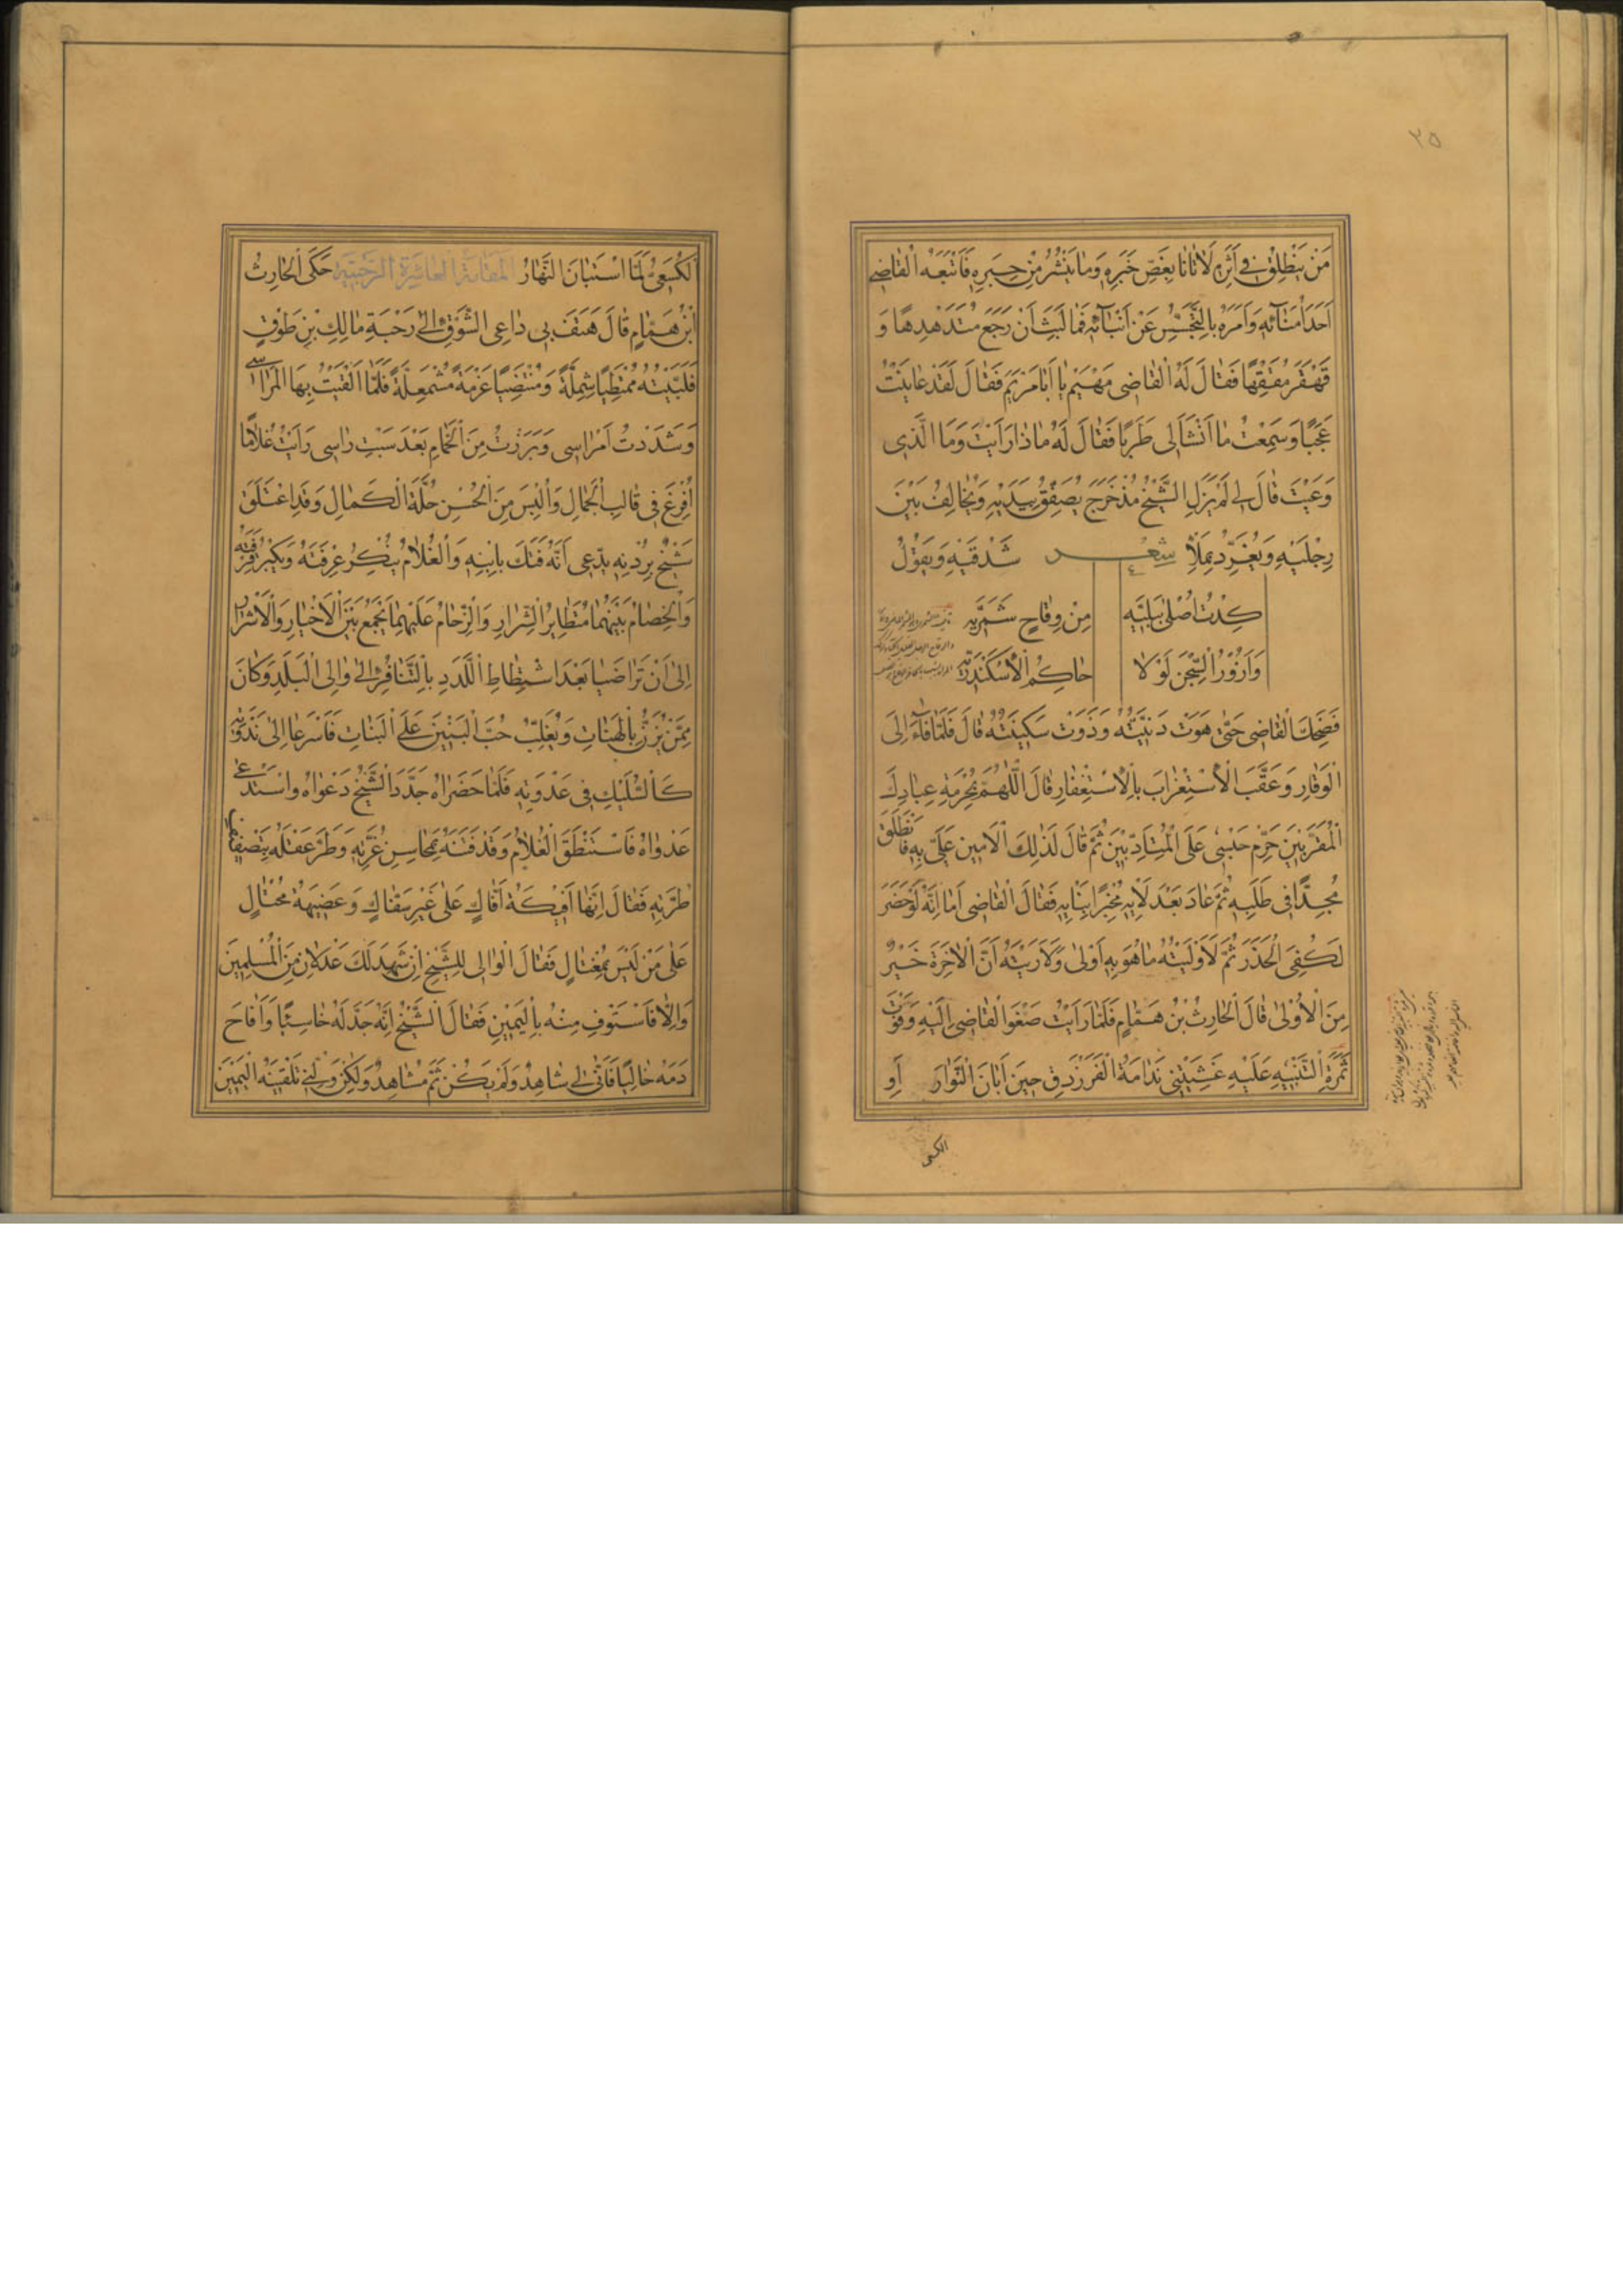 ٢٥
مَنْ يَنْطَلِقُ فِي أَثَرِهِ لَأَتَانَا بِفَصِّ خَبَرِهِ وَمَا يَنْشُرُ مِنْ حِبَرِهِ فَأَتْبَعَهُ الْقَاضِي
أَحَدَ أُمَنَائِهِ وَأَمَرَهُ بِالتَّجَسُّسِ عَنْ أَنْبَائِهِ فَمَا لَبِثَ أَنْ رَجَعَ مُتَدَهْدِهًا وَ
قَهْقَرَ مُقَهْقِهًا فَقَالَ لَهُ الْقَاضِي مَهْيَمْ يَا أَبَا مَرْيَمَ فَقَالَ لَقَدْ عَايَنْتُ
عَجَبًا وَسَمِعْتُ مَا أَنْشَأَ لِي طَرَبًا فَقَالَ لَهُ مَاذَا رَأَيْتَ وَمَا الَّذِي
وَعَيْتَ قَالَ لِي لَمْ يَزَلِ الشَّيْخُ مُذْ خَرَجَ يُصَفِّقُ بِيَدَيْهِ وَيُخَالِفُ بَيْنَ
رِجْلَيْهِ وَيُغَرِّدُ بِمَلْإِ شعر شَدْقَيْهِ وَيَقُولُ
كِدْتُ أَصْلَى بِبَلِيَّه مِنْ وِقَاحٍ شَمَّرِيَّه
وَأَزُورُ السِّجْنَ لَوْلَا حَاكِمُ الْأَسْكَنْدَرِيَّه
فَضَحِكَ الْقَاضِي حَتَّى هَوَتْ دَنِّيَّتُهُ وَذَوَتْ سَكِينَتُهُ قَالَ فَلَمَّا فَاءَ إِلَى
الْوَقَارِ وَعَقَّبَ الْاسْتِغْرَابَ بِالْاسْتِغْفَارِ قَالَ اللَّهُمَّ بِحُرْمَةِ عِبَادِكَ
الْمُقَرَّبِينَ حَرِّمْ حَبْسِي عَلَى الْمُتَأَدِّبِينَ ثُمَّ قَالَ لِذَلِكَ الْأَمِينِ عَلَيَّ بِهِ فَانْطَلَقَ
مُجِدًّا فِي طَلَبِهِ ثُمَّ عَادَ بَعْدَ لَأْيِهِ مُخْبِرًا بِنَأْيِهِ فَقَالَ الْقَاضِي أَمَا إِنَّهُ لَوْ حَضَرَ
لَكُفِيَ الْحَذَرَ ثُمَّ لَأَوْلَيْتُهُ مَا هُوَ بِهِ أَوْلَى وَلَأَرَيْتُهُ أَنَّ الْآخِرَةَ خَيْرٌ
مِنَ الْأُولَى قَالَ الْحَارِثُ بْنُ هَمَّامٍ فَلَمَّا رَأَيْتُ صَغْوَ الْقَاضِي إِلَيْهِ وَفَوْتَ
ثَمَرَةِ التَّنْبِيهِ عَلَيْهِ غَشِيَتْنِي نَدَامَةُ الْفَرَزْدَقِ حِينَ أَبَانَ النَّوَارَ أَوِ
الكسعى
الْكُسَعِيِّ لَمَّا اسْتَبَانَ النَّهَارُ الْمَقَامَةُ الْعَاشِرَةُ الرَّحْبِيَّةُ حَكَى الْحَارِثُ
ابْنُ هَمَّامٍ قَالَ هَتَفَ بِي دَاعِي الشَّوْقِ إِلَى رَحْبَةِ مَالِكِ بْنِ طَوْقٍ
فَلَبَّيْتُهُ مُمْتَطِيًا شِمِلَّةً وَمُنْتَضِيًا عَزْمَةً مُشْمَعِلَّةً فَلَمَّا أَلْقَيْتُ بِهَا الْمَرَاسِي
وَشَدَدْتُ أَمْرَاسِي وَبَرَزْتُ مِنَ الْحَمَّامِ بَعْدَ سَبْتِ رَاسِي رَأَيْتُ غُلَامًا
أُفْرِغَ فِي قَالَبِ الْجَمَالِ وَأُلْبِسَ مِنَ الْحُسْنِ حُلَّةَ الْكَمَالِ وَقَدِ اعْتَلَقَ
شَيْخٌ بِرُدْنِهِ يَدَّعِي أَنَّهُ فَتَكَ بِابْنِهِ وَالْغُلَامُ يُنْكِرُ عِرْفَتَهُ وَيُكْبِرُ قِرْفَتَهُ
وَالْخِصَامُ بَيْنَهُمَا مُتَطَايِرُ الشَّرَارِ وَالزِّحَامُ عَلَيْهِمَا يَجْمَعُ بَيْنَ الْأَخْيَارِ وَالْأَشْرَارِ
إِلَى أَنْ تَرَاضَيَا بَعْدَ اشْتِطَاطِ اللَّدَدِ بِالتَّنَافُرِ إِلَى وَالِي الْبَلَدِ وَكَانَ
مِمَّنْ يُزَنُّ بِالْهَنَاتِ وَيُغَلِّبُ حُبَّ الْبَنِينَ عَلَى الْبَنَاتِ فَأَسْرَعَا إِلَى نَدْوَتِهِ
كَالسُّلَيْكِ فِي عَدْوَتِهِ فَلَمَّا حَضَرَاهُ جَدَّدَ الشَّيْخُ دَعْوَاهُ وَاسْتَدْعَى
عَدْوَاهُ فَاسْتَنْطَقَ الْغُلَامَ وَقَدْ فَتَنَهُ بِمَحَاسِنِ غُرَّتِهِ وَطَرَّ عَقْلَهُ بِتَصْفِيفِ
طُرَّتِهِ فَقَالَ إِنَّهَا أَفِيكَةُ أَفَّاكٍ عَلَى غَيْرِ سَفَّاكٍ وَعَضِيهَةُ مُحْتَالٍ
عَلَى مَنْ لَيْسَ بِمُغْتَالٍ فَقَالَ الْوَالِي لِلشَّيْخِ إِنْ شَهِدَ لَكَ عَدْلَانِ مِنَ الْمُسْلِمِينَ
وَإِلَّا فَاسْتَوْفِ مِنْهُ بِالْيَمِينِ فَقَالَ الشَّيْخُ إِنَّهُ جَدَّلَهُ خَاسِئًا وَأَفَاحَ
دَمَهُ خَالِيًا فَأَنَّى لِي شَاهِدٌ وَلَمْ يَكُنْ ثَمَّ مُشَاهِدٌ وَلَكِنْ وَلِّنِي تَلْقِينَهُ الْيَمِينَ